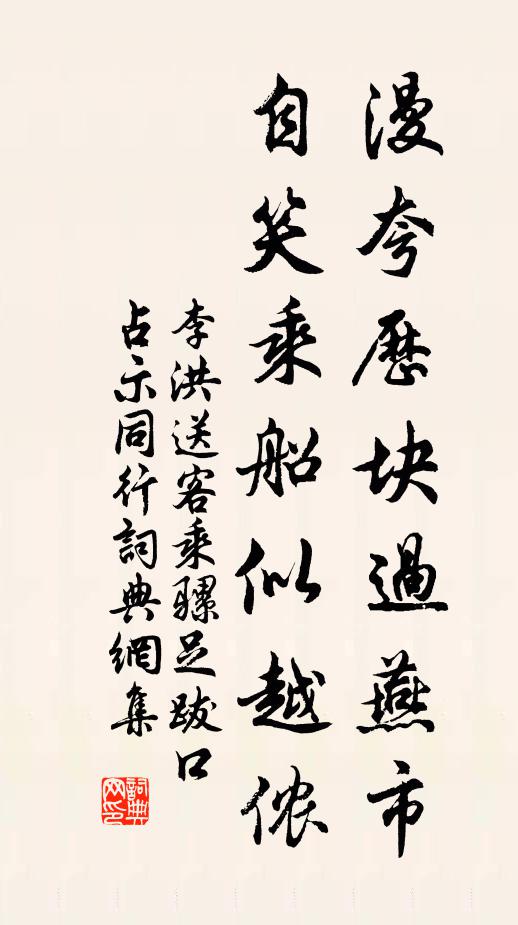 漫夸歷块過燕市
自笑乘船似越侬
李洪送客乘騾足跋口
占示同行詞典網集
詞典网印